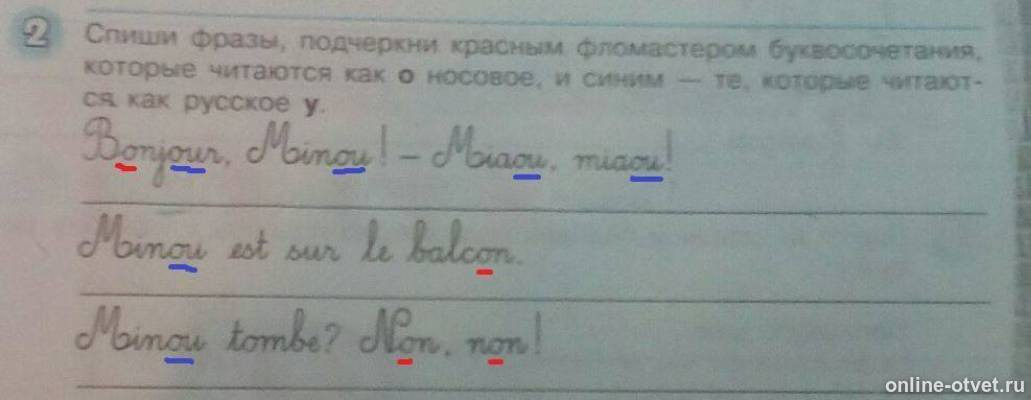 2 Спиши фразы, подчеркни красным фломастером буквосочетания,
которые читаются как о носовое, и синим — те, которые читают-
ся как русское у.
Bonjour, Minou! – Miaou, miaou!
Minou est sur le balcon.
Minou tombe? Non, non!
online-otvet.ru